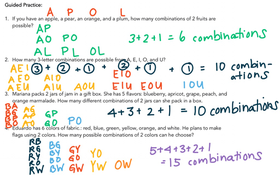 Guided Practice:
A P O L
1. If you have an apple, a pear, an orange, and a plum, how many combinations of 2 fruits are possible?
AP
AO PO
AL PL OL
3+2+1 = 6 combinations
2. How many 3-letter combinations are possible from A, E, I, O, and U?
AEI 3 + 2 + 1 + 2 + 1 + 1 = 10 combin-
ations
AEO AIO EIO
AEU AIU AOU EIU EOU IOU
3. Mariana packs 2 jars of jam in a gift box. She has 5 flavors: blueberry, apricot, grape, peach, and
orange marmalade. How many different combinations of 2 jars can she pack in a box.
BA
BG AG
BP AP GP
BO AO GO PO
4+3+2+1 = 10 combinations
4. Eduardo has 6 colors of fabric: red, blue, green, yellow, orange, and white. He plans to make
flags using 2 colors. How many possible combinations of 2 colors can she choose?
RB
RG BG
RY BY GY
RO BO GO YO
RW BW GW YW OW
5+4+3+2+1
= 15 combinations